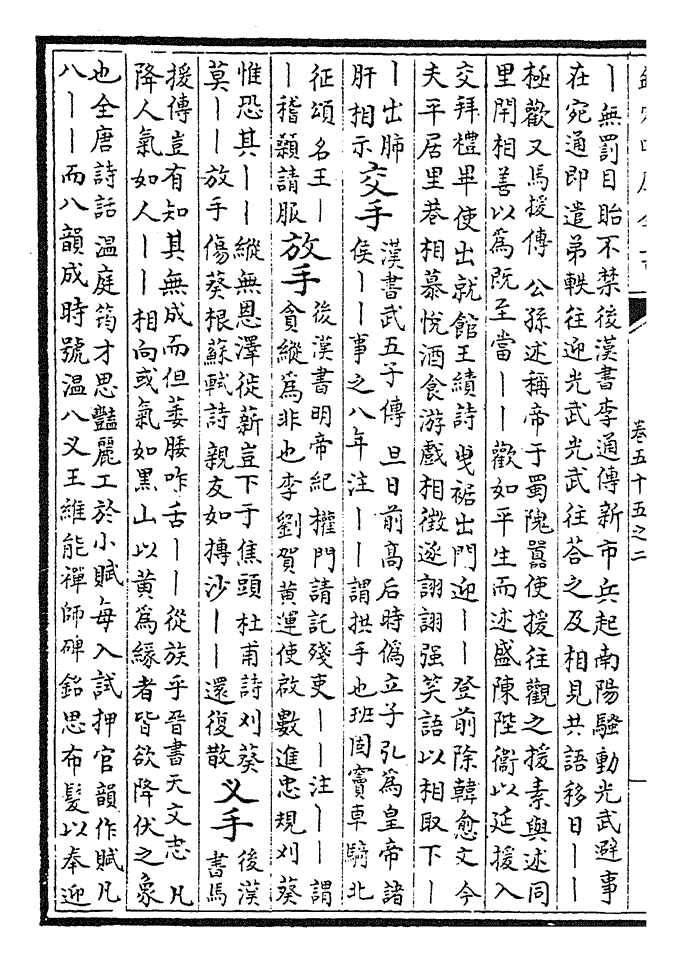 卷五十五之二
丨無罰目眙不禁後漢書李通傳新市兵起南陽騷動光武避事
在宛通即遣弟軼往迎光武光武往荅之及相見共語移日丨丨
極歡又馬援傳 公孫述稱帝于蜀隗囂使援往觀之援素與述同
里閈相善以為既至當丨丨歡如平生而述盛陳陛衞以延援入
交拜禮畢使出就館王績詩 曵裾出門迎丨丨登前除韓愈文今
夫平居里巷相慕悅酒食游戲相徵逐詡詡强笑語以相取下丨
丨出肺
肝相示
交手
漢書武五子傳 旦日前高后時偽立子弘為皇帝諸
侯丨丨事之八年注丨丨謂拱手也班固竇車騎北
征頌 名王丨
丨稽顙請服
放手
後漢書明帝紀權門請託殘吏丨丨注丨丨謂
貪縱為非也李劉賀黄運使啟 數進忠規刈葵
惟恐其丨丨縱無恩澤徙薪豈下于焦頭杜甫詩刈葵
莫丨丨放手傷葵根蘇軾詩 親友如摶沙丨丨還復散
叉手
後漢
書馬
援傳豈有知其無成而但萎腇咋舌丨丨從族乎晉書天文志 凡
降人氣如人丨丨相向或氣如黑山以黄為緣者皆欲降伏之象
也全唐詩話 温庭筠才思豔麗工於小賦每入試押官韻作賦凡
八丨丨而八韻成時號温八叉王維能禪師碑銘思布髮以奉迎